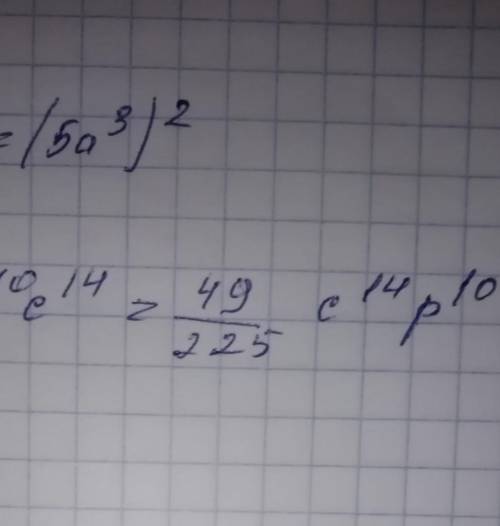 =(5a³)²
¹⁰c¹⁴ = 49/225 c¹⁴p¹⁰